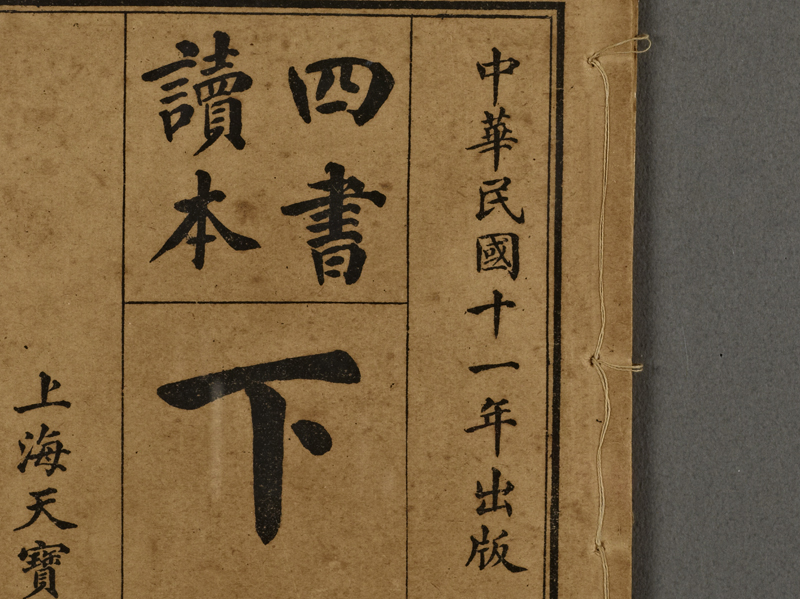 中華民國十一年出版
四書
讀本
下
上海天寶